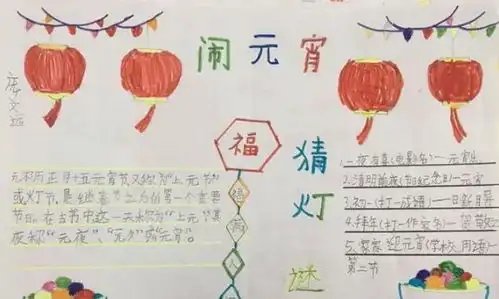 闹元宵
福
猜
灯
谜
农历正月十五元宵节又称为"上元节"
或灯节,是继春节之后的第一个重要
节日。在古书中这一天称为"上元"其
夜称"元夜"、"元夕"或"元宵"。
2.清明前夜(打纪念日)一元宵
3.初一(打一成语)一日新月异
4.拜年(打一作家名)一贺敬之
5.家家迎元宵(学校用语)一
第二节